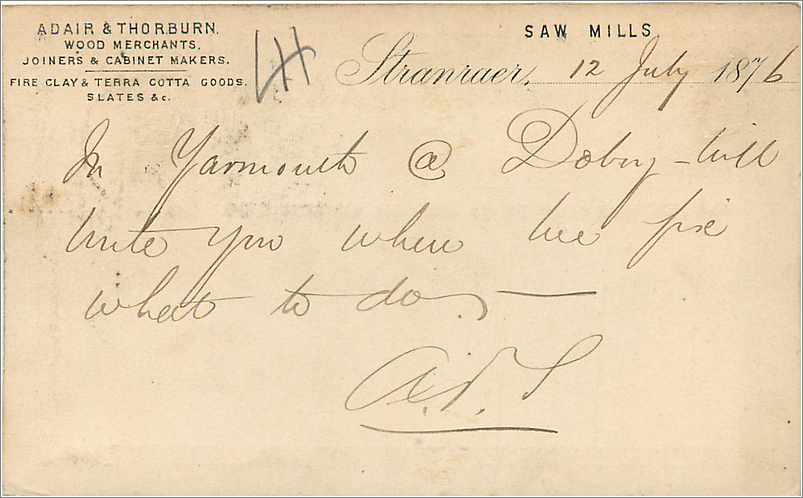 ADAIR & THORBURN,
WOOD MERCHANTS,
JOINERS & CABINET MAKERS.
FIRE CLAY & TERRA COTTA GOODS.
SLATES &c.
SAW MILLS
Stranraer, 12 July 1876
In Yarmouth @ – will
write you when we fix
what to do. —